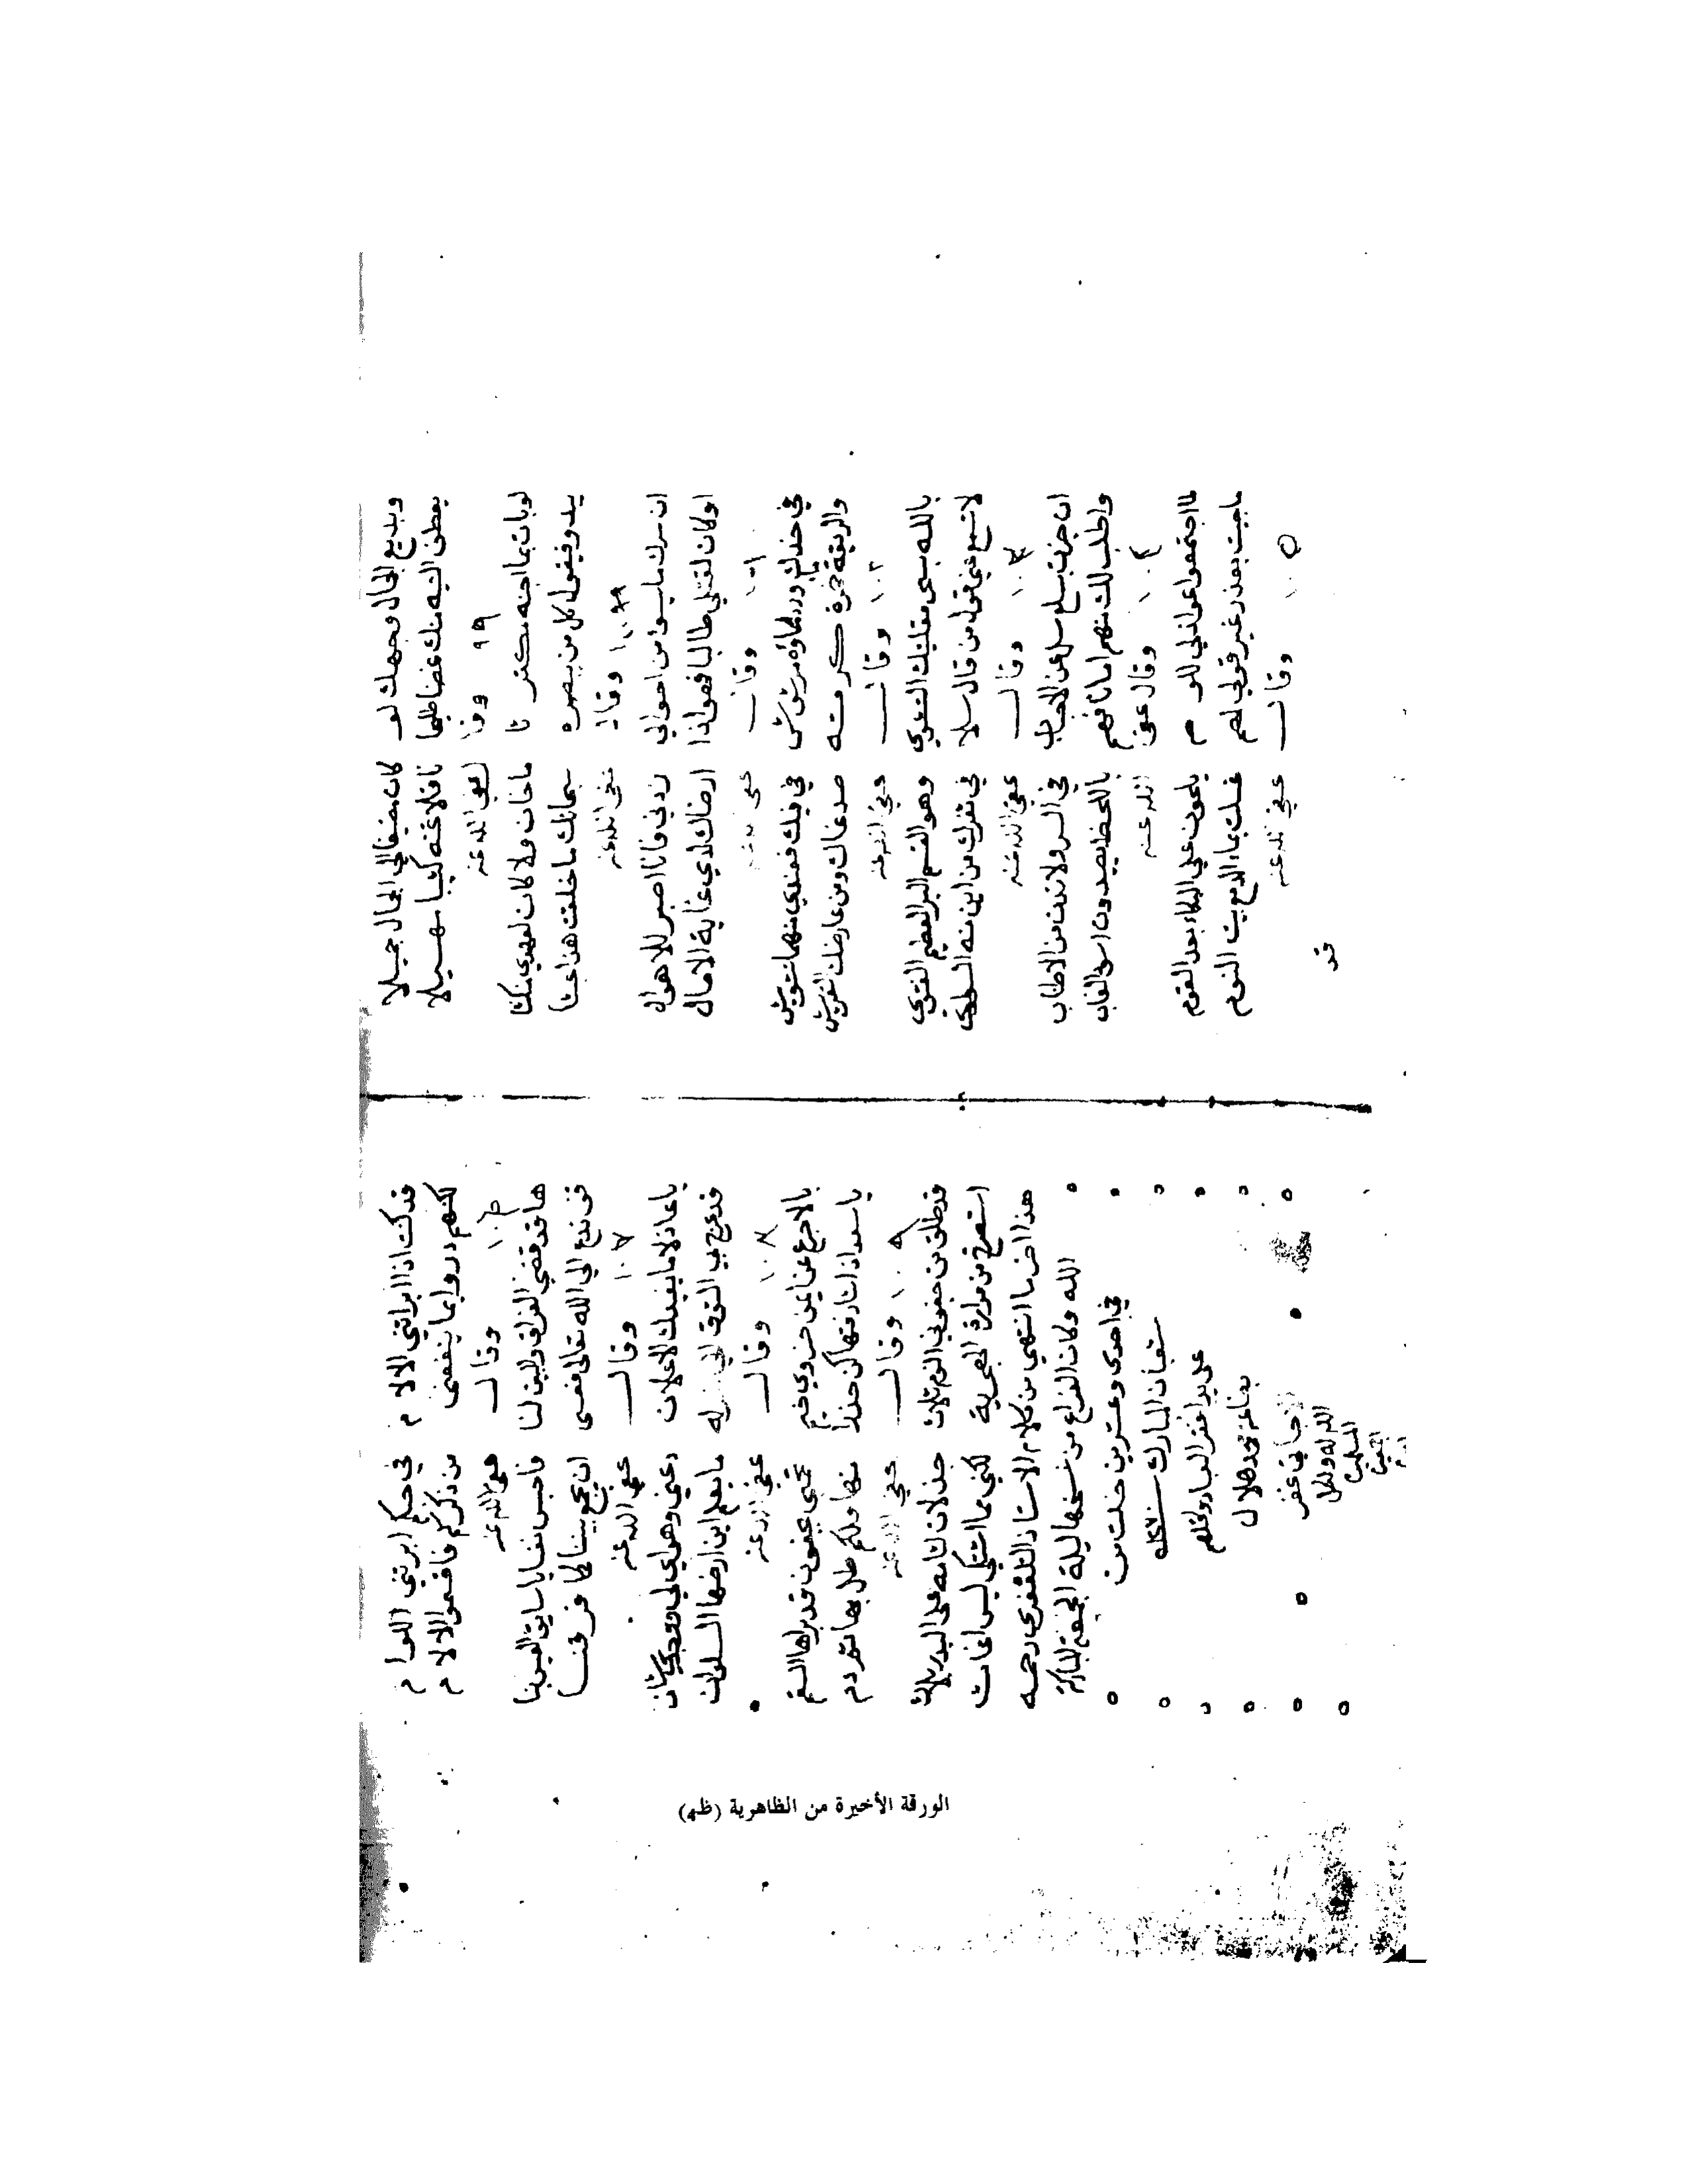 وبديع الجمال وجهك لو كان مضيفا لي الجمال جميلا
يعطف اليه منك غصنا كثيبا مهيلا
وقال عفى الله عنه ٩٩
لو بات بما اجنه مكترثا ما خان ولا كان لعهدي نكثا
يبدو فيقول كل من يبصره سبحانك ما خلقت هذا عبثا
وقال عفى الله عنه
ان سرك ما يسوء من احوالي زدني فانا اصبر للاهوال
او كان لقتلي طالبا فهو اذا ارضاك لدي غاية الامال
وقال عفى الله عنه
في خدك ورد ماؤه مرشوش في فيك فعندي منهما تشويش
والريقة خمرة صدغاك ومن عارضك
وقال عفى الله عنه ١٠٢
بالله بسحر مقلتيك الثعلي وهو القسم البر العظيم
لا تسمع في قول من قال سلا في ثغرك من اين له السلوى
وقال عفى الله عنه ١٠٣
ان جزت بسلع سل عن الاحباب في السر ولا تدن من الاطناب
واطلب لك منهم امانا فهم باللحظ يصيدون اسود الغاب
وقال عفى الله عنه ١٠٤
لما اجتمعوا عواذلي للوم يلحون على البكاء بعد القوم
ما جيت بعذر غير قولي لهم غسلت بماء الدمع بيت النوم
وقال عفى الله عنه ١٠٥
قد
قد كنت اذا ابراني الالام في حبكم ابرتني اللوام
لكنهم دروا بما ينفعني من ذكركم فاقسموا لالام
وقال عفى الله عنه ١٠٦
ها قد قضي الفراق والبين لنا فاحبس نفسا يا سايق العيس بنا
قف ندع الى الله تعالى فعسى ان يجمع بيننا كما فرقنا
وقال عفى الله عنه ١٠٧
يا عاذل ما يفيدك الاعلان دعني وهواي لي
قد عرج بي الشوق الى ما يعلم اين ارضها السلوان
وقال عفى الله عنه ١٠٨
بالاجرع عن ايمن حزوى خيم تحمى بجفون قد براها السقم
يا سعد اذا شارفتها كن حذرا فيها فلكم طل بها ثم دم
وقال عفى الله عنه ١٠٩
قد طلق من جفوني النوم ثلاث جذلان لثامه على البدر يلاث
استصرخ من مرارة الهجر به لكني مما اشتكي ليس اغاث
هذا اخر ما انتهى من كلام الاستاذ التلعفري رحمه
الله وكان الفراغ من نسخها ليلة الجمعة المباركة
في احدى وعشرين خلت من
شعبان المبارك سنة
على يد افقر العباد واحقرهم
بضاعة محمد هلال
الاجاتي غفر
الله له ولكل
المسلمين
امين
الورقة الأخيرة من الظاهرية (ظ٤)